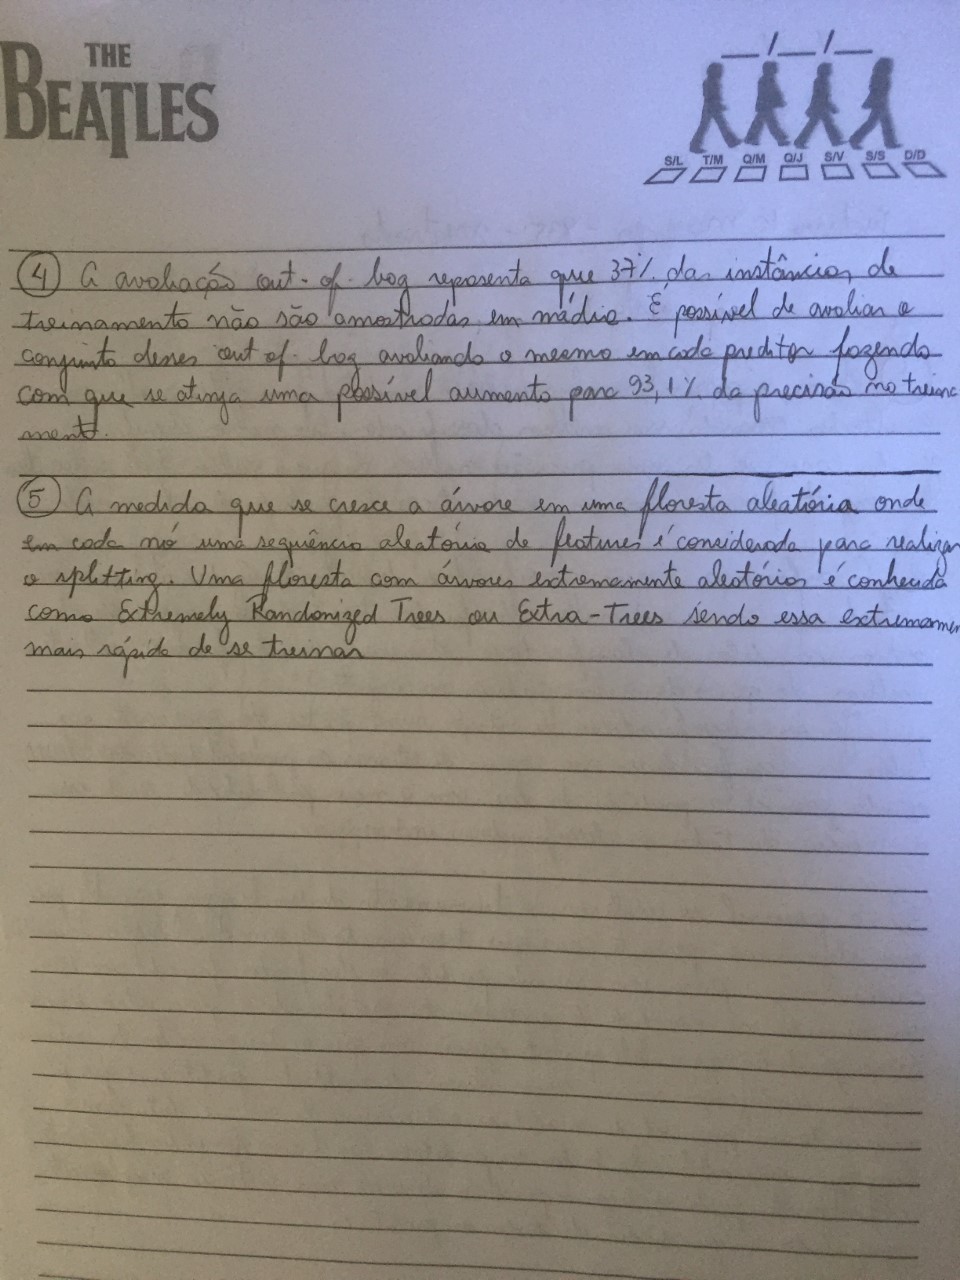 THE
BEATLES
__/__/__
S/L T/M Q/M Q/J S/V S/S D/D
4 A avaliação out-of-bag representa que 37% das instâncias de
treinamento não são amostradas em média. É possível de avaliar o
conjunto desses out of bag avaliando o mesmo em cada preditor fazendo
com que se atinja uma possível aumento para 93,1% da precisão no treina
mento.
5 A medida que se cresce a árvore em uma floresta aleatória onde
em cada nó uma sequência aleatória de features é considerada para realizar
o splitting. Uma floresta com árvores extremamente aleatórias é conhecida
como Extremely Randomized Trees ou Extra-Trees sendo essa extremamen
mais rápida de se treinar